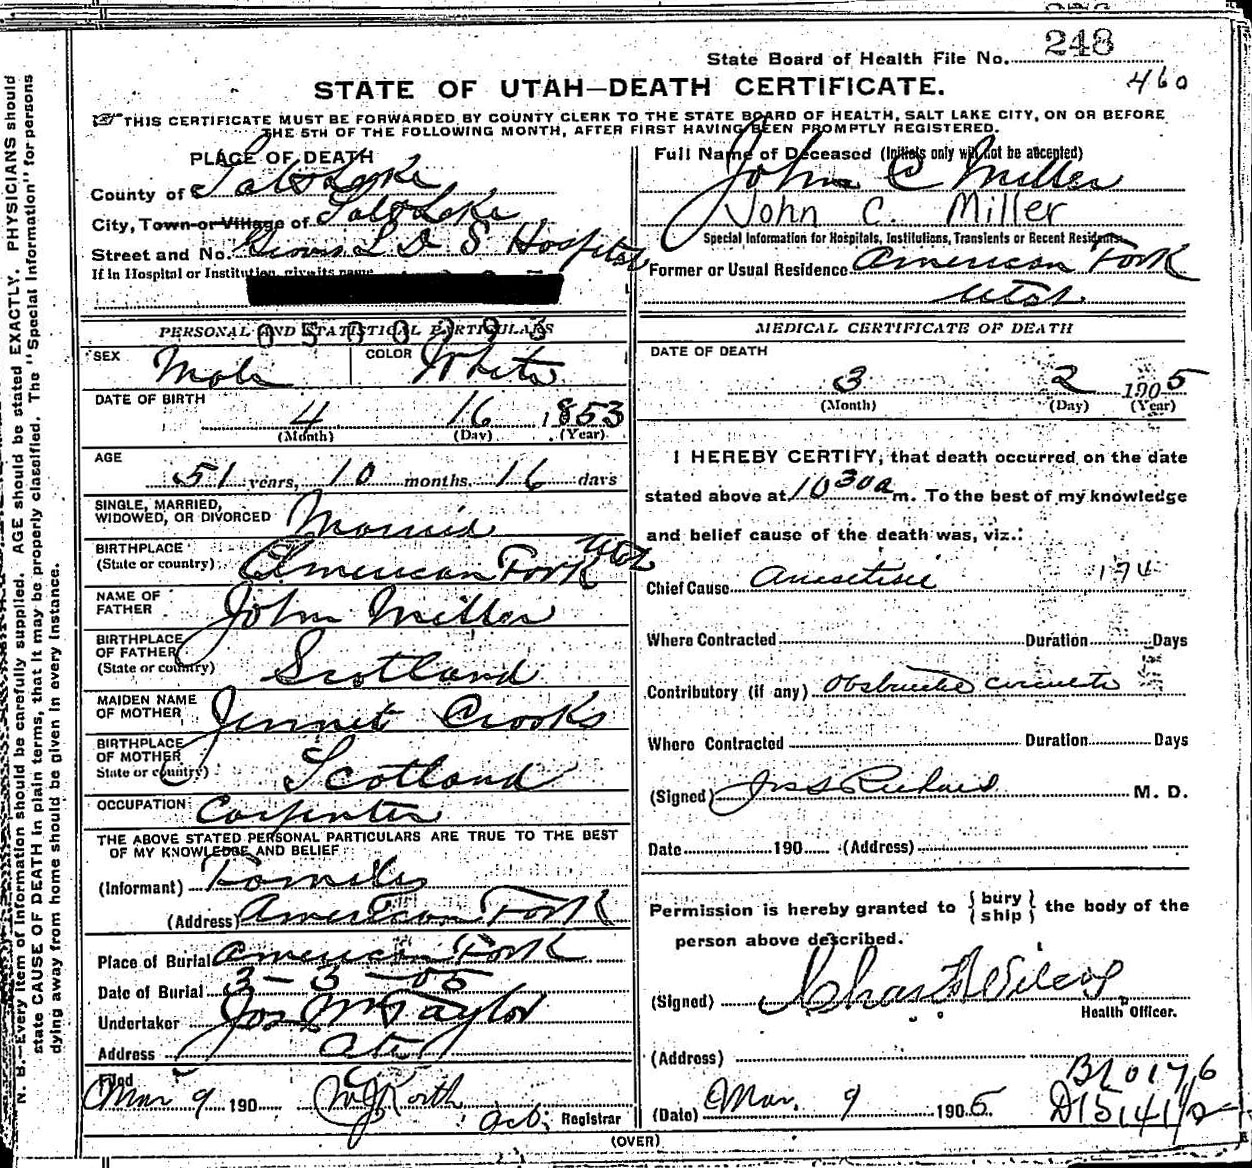 248
State Board of Health File No.
460
STATE OF UTAH—DEATH CERTIFICATE.
THIS CERTIFICATE MUST BE FORWARDED BY COUNTY CLERK TO THE STATE BOARD OF HEALTH, SALT LAKE CITY, ON OR BEFORE
THE 5TH OF THE FOLLOWING MONTH, AFTER FIRST HAVING BEEN PROMPTLY REGISTERED.
PLACE OF DEATH
County of Salt Lake
City, Town or Village of Salt Lake
Street and No. Groves L D S Hospital
If in Hospital or Institution, give its name
0500393
PERSONAL AND STATISTICAL PARTICULARS
SEX Male COLOR White
DATE OF BIRTH
4 16 1853
(Month) (Day) (Year)
AGE
51 years, 10 months, 16 days
SINGLE, MARRIED,
WIDOWED, OR DIVORCED Married
BIRTHPLACE
(State or country) American Fork Utah
NAME OF
FATHER John Miller
BIRTHPLACE
OF FATHER
(State or country) Scotland
MAIDEN NAME
OF MOTHER Jennet Crooks
BIRTHPLACE
OF MOTHER
State or country) Scotland
OCCUPATION Carpenter
THE ABOVE STATED PERSONAL PARTICULARS ARE TRUE TO THE BEST
OF MY KNOWLEDGE AND BELIEF
(Informant) Family
(Address) American Fork
Place of Burial American Fork
Date of Burial 3-3-05
Undertaker Jos Wm Taylor
Address City
Filed
Mar 9 190 Registrar
(OVER)
Full Name of Deceased (Initials only will not be accepted)
John C Miller
John C. Miller
Special Information for Hospitals, Institutions, Transients or Recent Residents
Former or Usual Residence American Fork
Utah
MEDICAL CERTIFICATE OF DEATH
DATE OF DEATH
3 2 1905
(Month) (Day) (Year)
I HEREBY CERTIFY, that death occurred on the date
stated above at 10 30 a m. To the best of my knowledge
and belief cause of the death was, viz.:
Chief Cause 174
Where Contracted Duration Days
Contributory (if any)
Where Contracted Duration Days
(Signed) M. D.
Date 190 (Address)
Permission is hereby granted to {bury
ship} the body of the
person above described.
(Signed)
Health Officer.
(Address)
(Date) Mar. 9 1905.
N. B.—Every item of information should be carefully supplied. AGE should be stated EXACTLY. PHYSICIANS should
state CAUSE OF DEATH in plain terms, that it may be properly classified. The "Special Information" for persons
dying away from home should be given in every instance.